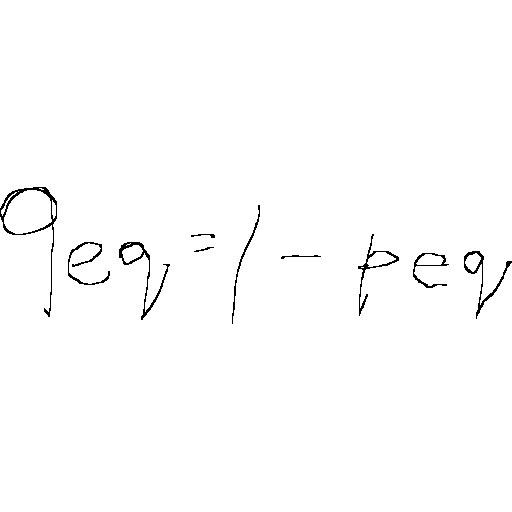 qeq = 1 - peq